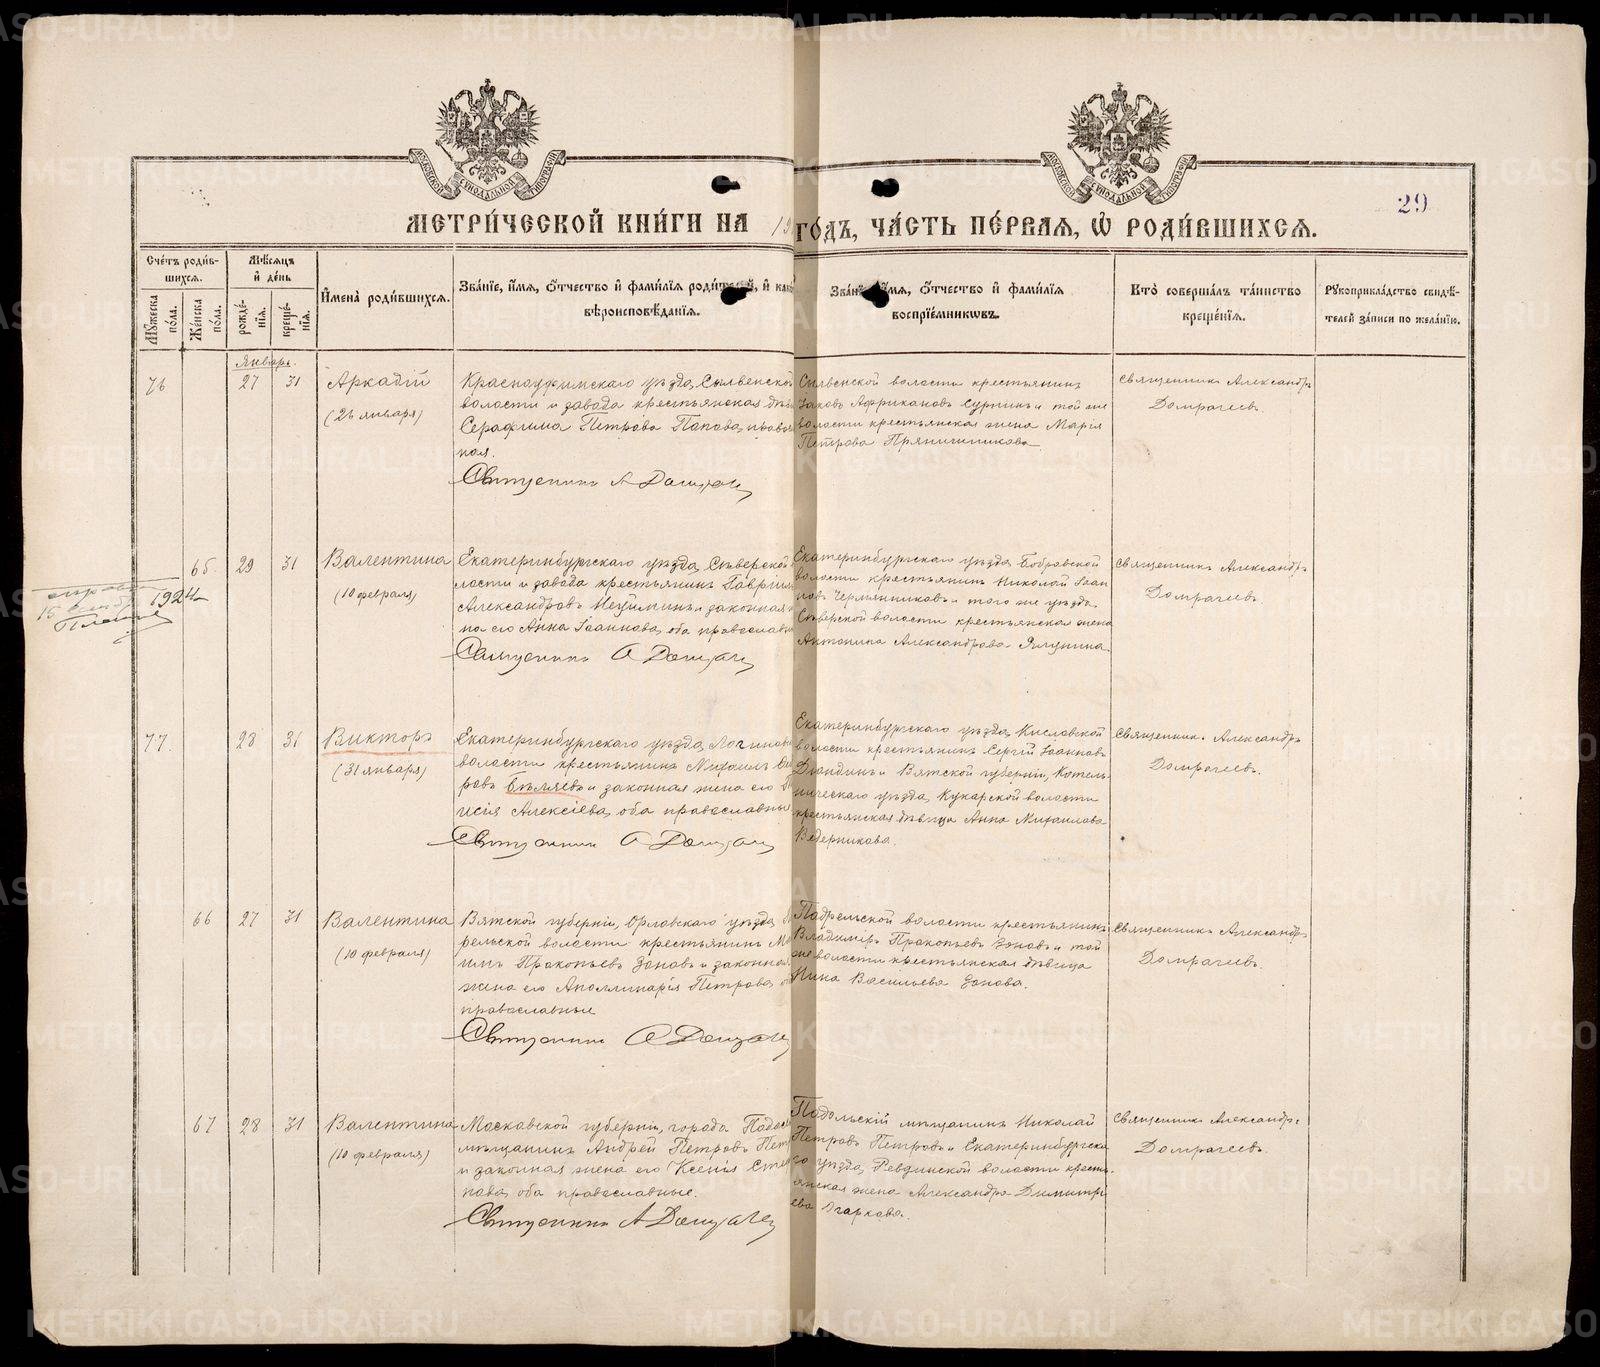 МЕТРИ́ЧЕСКОЙ КНИ́ГИ НА 19
ГО́ДЪ, ЧА́СТЬ ПЕ́РВАЯ, Ѡ РОДИ́ВШИХСЯ.
29
Сче́тъ роди́в-
шихся.
Мѣ́сяцъ
и де́нь
Му́жеска по́ла.
Же́нска по́ла.
рожде́-
нія.
креще́-
нія.
Имена̀ роди́вшихся.
Зва́нїе, и́мя, ѻ́тчество и фами́лїя роди́телей, и како
вѣроисповѣ́данїя.
Зва́нїе, и́мя, ѻ́тчество и фами́лїя
воспрїе́мниковъ.
Кто̀ соверша́лъ та́инство
креще́нїя.
Рукоприкла́дство свидѣ́-
телей за́писи по жела́нїю.
Январь.
76
27
31
Аркадій
(26 января)
Красноуфимскаго уѣзда, Сылвенской
волости и завода крестьянская дѣви
Серафима Петрова Попова, правосл
ная.
Священникъ А Домрачев
Сылвенской волости крестьянинъ
Іаковъ Африкановъ Сургинъ и той же
волости крестьянская жена Марія
Петрова Пряничникова
Священникъ Александръ
Домрачеевъ.
65.
29
31
Валентина
(10 февраля)
Екатеринбургскаго уѣзда, Сѣверской
лости и завода крестьянинъ Гавріилъ
Александровъ и законная
на его Анна Іоаннова, оба православн
Священникъ А Домрачев
Екатеринбургскаго уѣзда Бобровской
волости крестьянинъ Николай Іоан
новъ Чермянниковъ и того же уѣзда,
Сѣверской волости крестьянская жена
Антонина Александрова Ялунина
Священникъ Александръ
Домрачеевъ.
15
1924
77.
28
31
Викторъ
(31 января)
Екатеринбургскаго уѣзда, Логиновс
волости крестьянинъ Михаилъ
ровъ Бѣляевъ и законная жена его
исія Алексіева, оба православные
Священникъ А Домрачев
Екатеринбургскаго уѣзда, Кисловской
волости крестьянинъ Сергій Іоанновъ
Дюндинъ и Вятской губерніи, Котель-
ническаго уѣзда, Кукарской волости
крестьянская дѣвица Анна Михаилова
Ведерникова.
Священникъ Александръ
Домрачеевъ.
66
27
31
Валентина
(10 февраля)
Вятской губерніи, Орловскаго уѣзда,
рельской волости крестьянинъ
имъ Прокопьевъ Зоновъ и законная
жена его Аполлинарія Петрова, об
православные
Священникъ А Домрачев
Подрельской волости крестьянинъ
Владиміръ Прокопьевъ Зоновъ и той
же волости крестьянская дѣвица
Нина Васильева Зонова.
Священникъ Александръ
Домрачеевъ.
67
28
31
Валентина
(10 февраля)
Московской губерніи, города Подол
мѣщанинъ Андрей Петровъ Пет
и законная жена его Ксенія Сте
нова, оба православные.
Священникъ А Домрачев
Подольскій мѣщанинъ Николай
Петровъ Петровъ и Екатеринбургска
го уѣзда, Ревдинской волости кресть-
янская жена Александра Димитрі
ева Огаркова.
Священникъ Александръ
Домрачеевъ.
METRIKI.GASO-URAL.RU